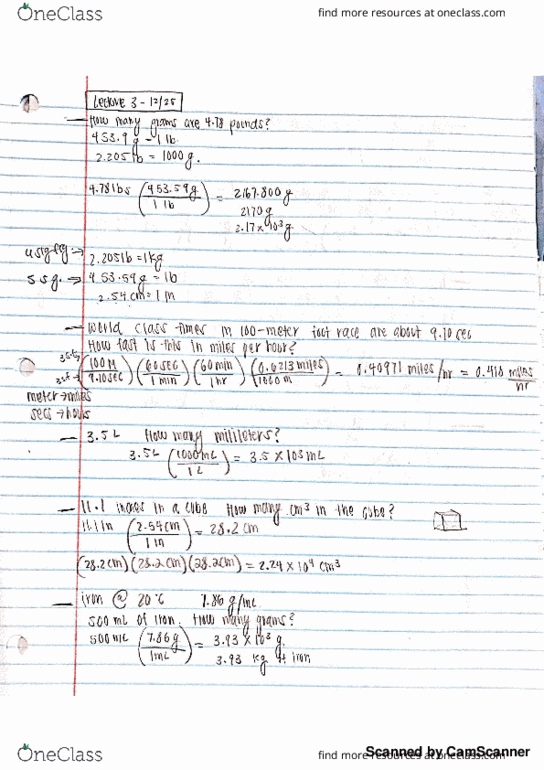 OneClass
find more resources at oneclass.com
Lecture 3 - 12/25
— How many grams are 4.78 pounds?
453.9 g = 1 lb.
2.205 lb = 1000 g.
4.78 lbs (453.59g / 1 lb) = 2167.800 g
2170 g
2.17 x 10³ g
4 sig fig → 2.205 lb = 1 kg
5 s.g. → 453.59g = lb
2.54 cm = 1 in
— World class times in 100-meter foot race are about 9.10 sec
How fast is this in miles per hour?
(100 M / 9.10 sec) (60 sec / 1 min) (60 min / 1 hr) (0.6213 miles / 1000 m) = 0.40971 miles/hr = 0.410 miles/hr
meter → miles
secs → hours
— 3.5 L How many milliliters?
3.5L (1000mL / 1 L) = 3.5 x 10³ mL
— 11.1 inches in a cube How many cm³ in the cube?
11.1 in (2.54 cm / 1 in) = 28.2 cm
(28.2 cm) (28.2 cm) (28.2 cm) = 2.24 x 10⁴ cm³
— iron @ 20°C 7.86 g/mL
500 mL of iron. How many grams?
500 mL (7.86 g / 1mL) = 3.93 x 10³ g
3.93 kg of iron
OneClass
find more resources at oneclass.com
Scanned by CamScanner